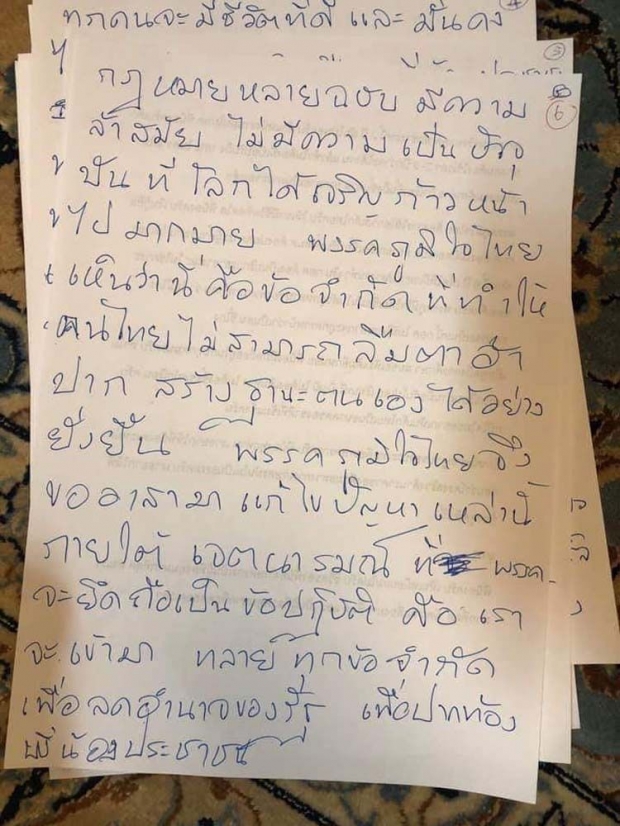 ทุกคนจะมีชีวิตที่ดี และ มั่นคง
6
กฎหมายหลายฉบับ มีความ
ล้าสมัย ไม่มีความเป็นปัจจุ
บัน ที่โลกได้เจริญก้าวหน้า
ไปมากมาย พรรคภูมิใจไทย
เห็นว่านี่คือข้อจำกัด ที่ทำให้
คนไทยไม่สามารถลืมตาอ้า
ปาก สร้างฐานะตนเองได้อย่าง
ยั่งยืน พรรคภูมิใจไทยจึง
ขออาสามาแก้ไขปัญหาเหล่านี้
ภายใต้ เจตนารมณ์ ที่ พรรค
จะยึดถือเป็นข้อปฏิบัติ คือ เรา
จะเข้ามา ทลายทุกข้อจำกัด
เพื่อลดอำนาจของรัฐ เพื่อปากท้อง
พี่น้องประชาชน